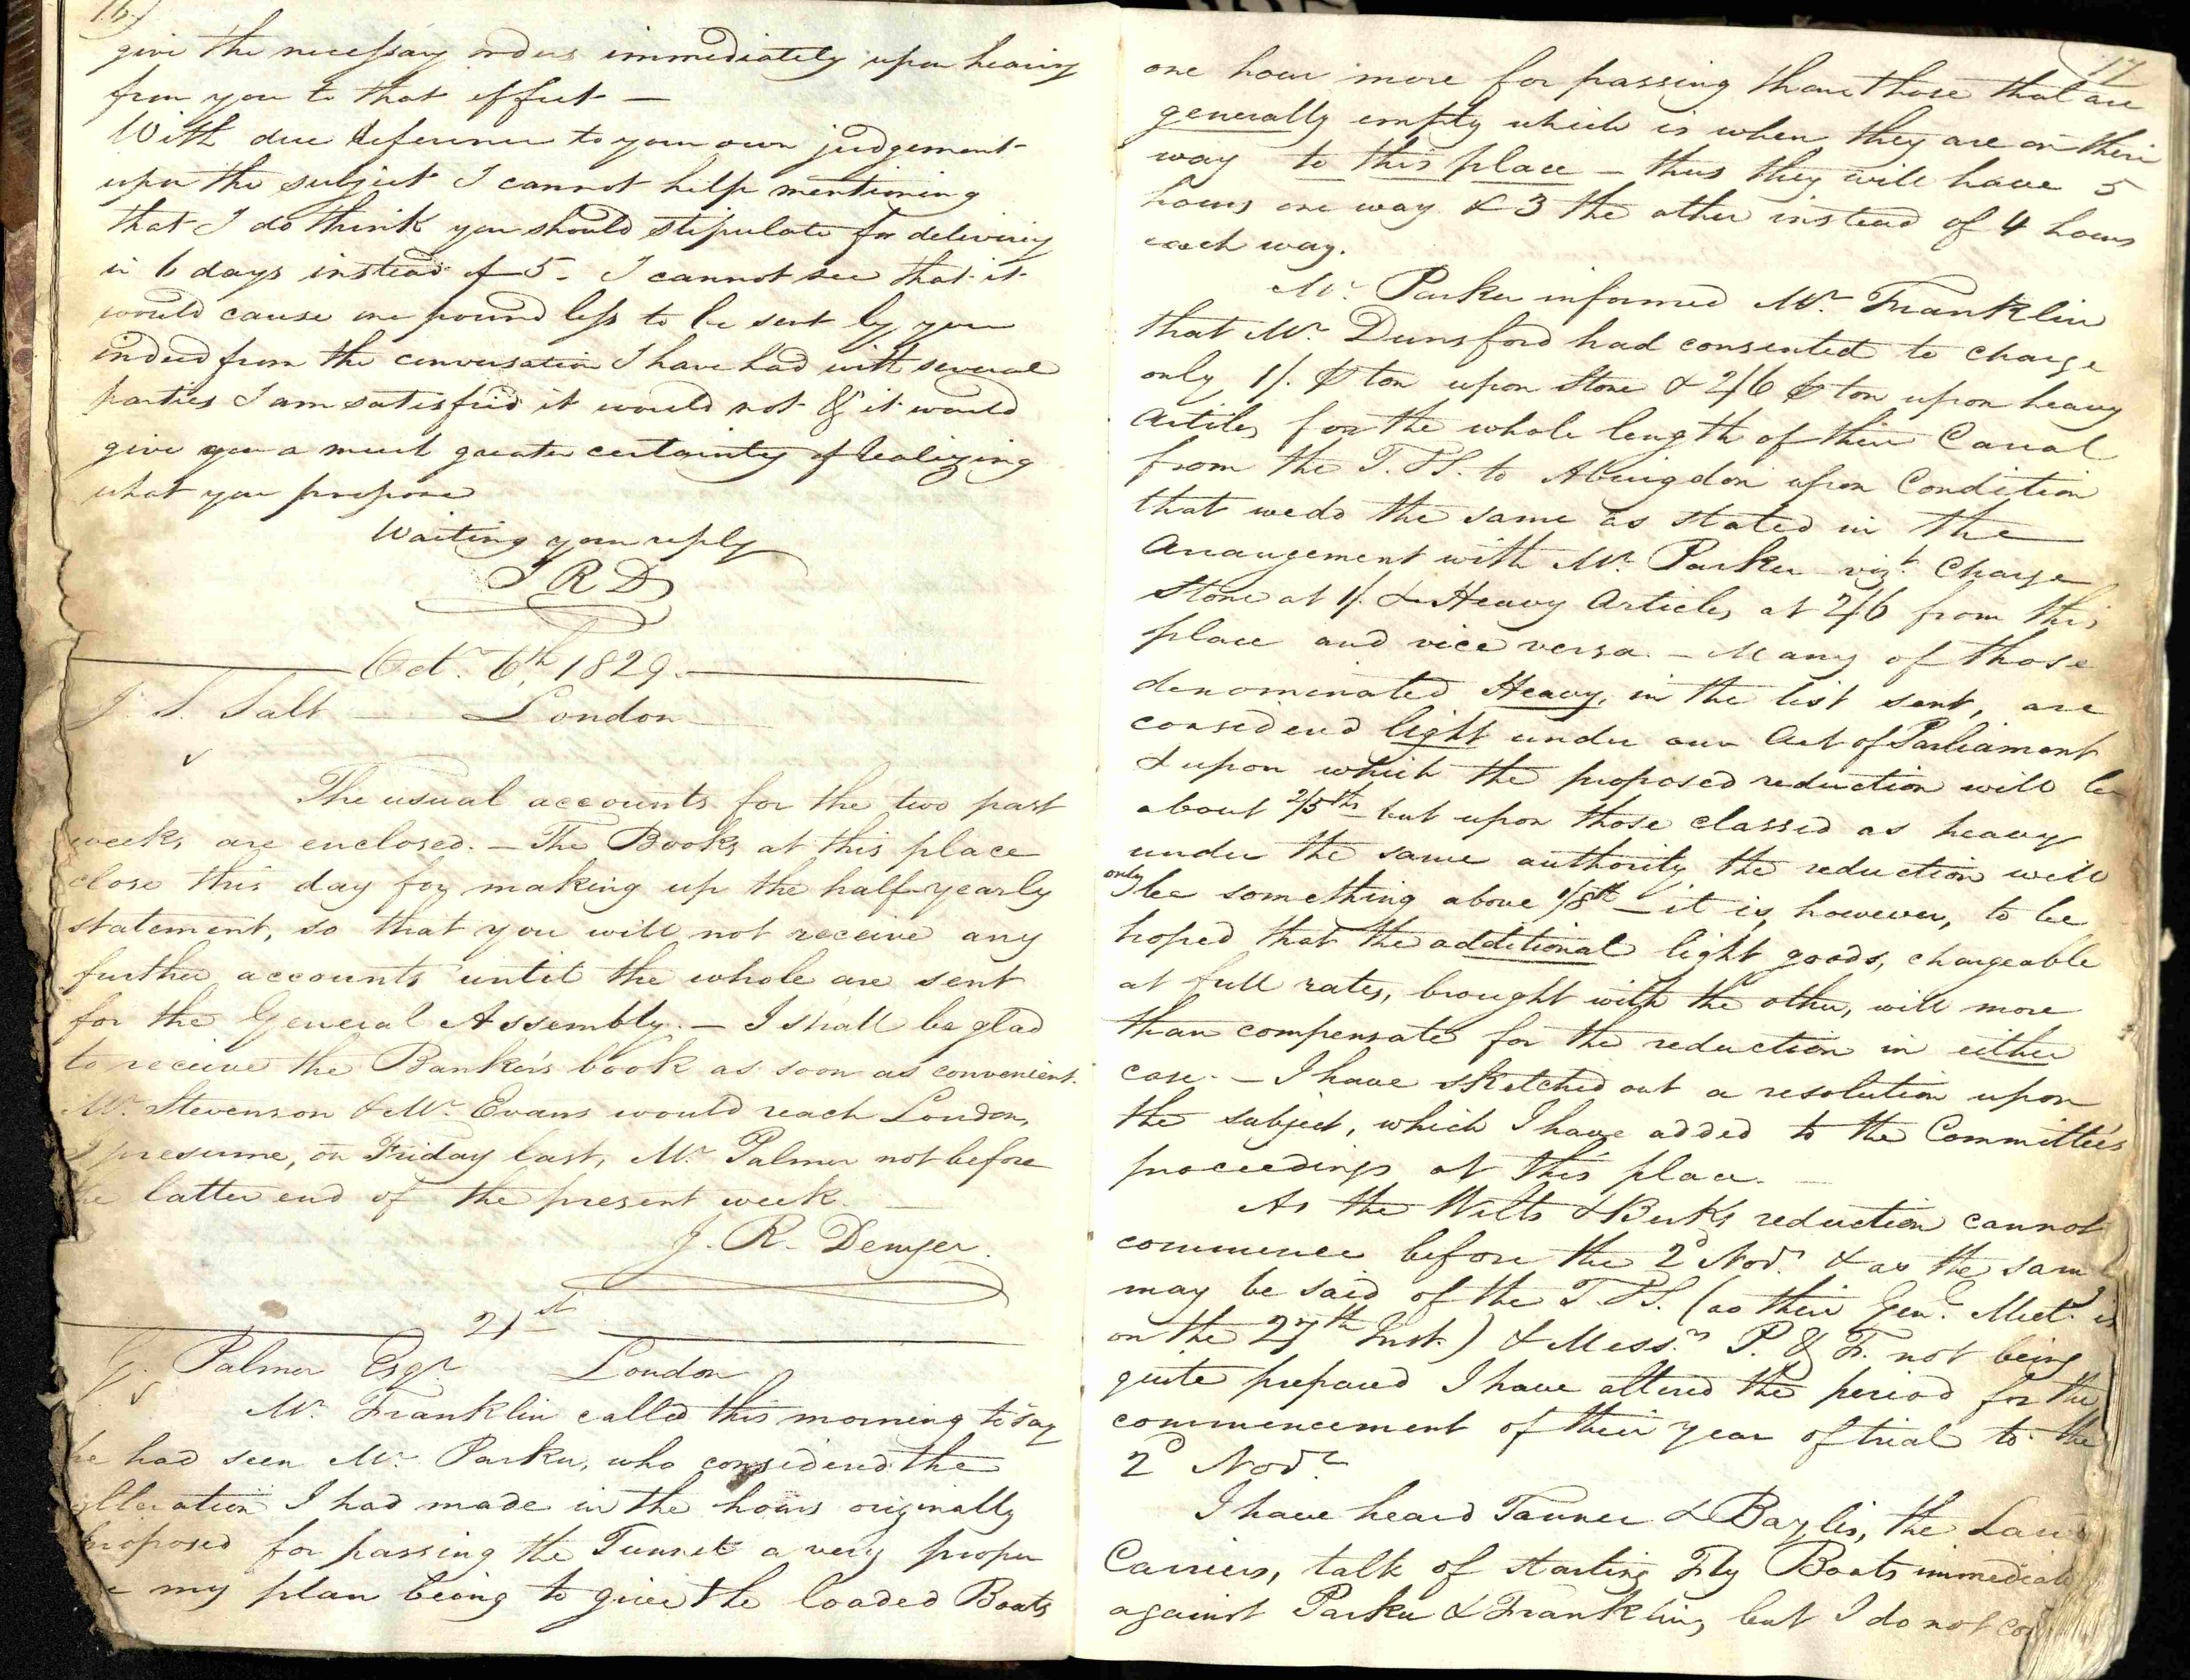 16
give the necessary orders immediately upon hearing
from you to that effect —
With due deference to your own judgement
upon the subject I cannot help mentioning
that I do think you should stipulate for delivering
in 6 days instead of 5 - I cannot see that it
would cause one pound less to be sent by you
indeed from the conversation I have had with several
parties I am satisfied it would not & it would
give you a much greater certainty of realizing
what you propose
Waiting your reply
J R D
Octr. 6th, 1829.
J. S. Salt — London
The usual accounts for the two past
weeks are enclosed. — The Books at this place
close this day for making up the half-yearly
statement, so that you will not receive any
further accounts until the whole are sent
for the General Assembly. — I shall be glad
to receive the Banker's book as soon as convenient.
Mr. Stevenson & Mr. Evans would reach London,
I presume, on Friday last, Mr. Palmer not before
the latter end of the present week. —
J. R. Denyer.
21st
G. Palmer Esqr. London
Mr. Franklin called this morning to say
he had seen Mr. Parker, who considered the
alteration I had made in the hours originally
proposed for passing the Tunnel a very proper
my plan being to give the loaded Boats
17
one hour more for passing than those that are
generally empty which is when they are on their
way to this place — thus they will have 5
hours one way & 3 the other instead of 4 hours
each way.
Mr. Parker informed Mr. Franklin
that Mr. Dunsford had consented to charge
only 1/. ⅌ ton upon Stone & 2/6 ⅌ ton upon heavy
Articles for the whole length of their Canal
from the T. & S. to Abingdon upon Condition
that we do the same as stated in the
Arrangement with Mr. Parker vizt. Charge
Stone at 1/. & Heavy Articles at 2/6 from this
place and vice versa. — Many of those
denominated Heavy, in the list sent, are
considered light under our Act of Parliament
& upon which the proposed reduction will be
about 2/5ths but upon those classed as heavy
under the same authority the reduction will
only be something above 1/8th — it is, however, to be
hoped that the additional light goods, chargeable
at full rates, brought with the other, will more
than compensate for the reduction in either
case. — I have sketched out a resolution upon
the subject, which I have added to the Committee's
proceedings at this place. —
As the Wilts & Berks reduction cannot
commence before the 2d Novr. & as the same
may be said of the T. & S. (as their Genl. Meetg. is
on the 27th Inst.) & Messrs. P. & F. not being
quite prepared I have altered the period for the
commencement of their year of trial to the
2d Novr.
I have heard Tanner & Baylis, the Land
Carriers, talk of starting Fly Boats
against Parker & Franklin, but I do not